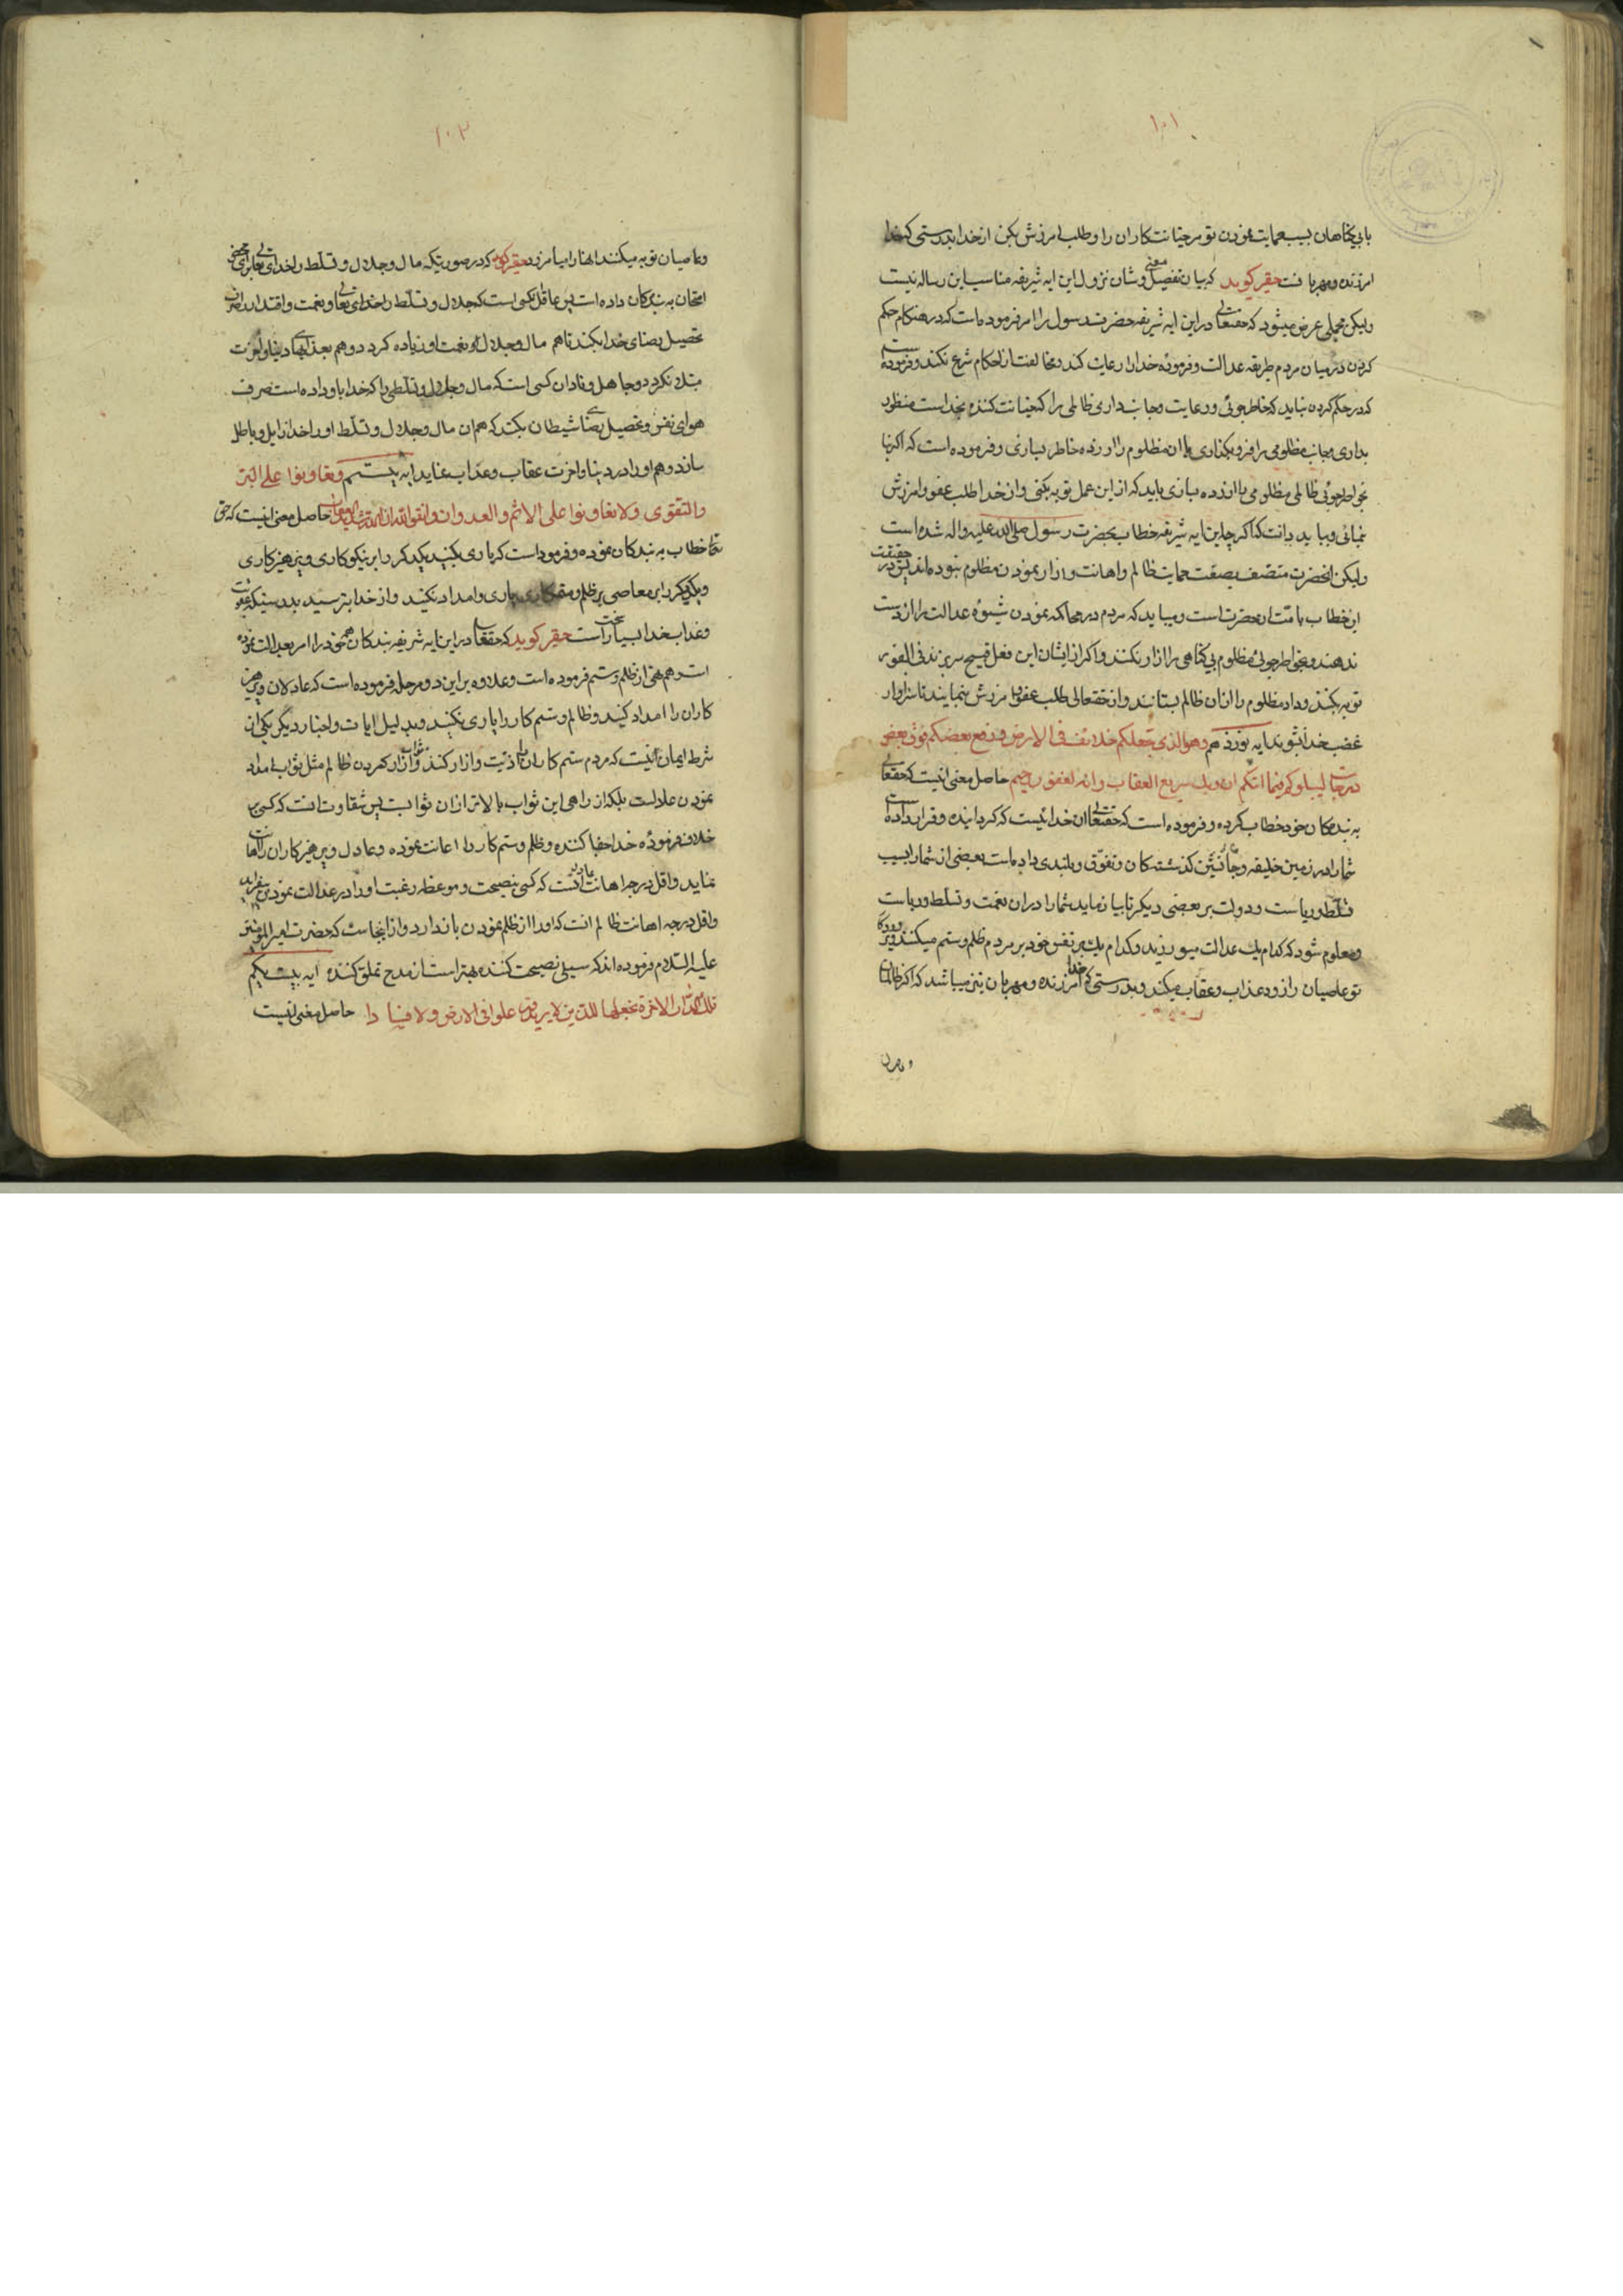 ۱۰۱
با بی‌کناهان بسبب حمایت نمودن تو مر خیانت‌کاران را و طلب امرزش بکن از خدا بدرستی که خدا
امرزنده و مهربانست حقیر کوید که بیان تفصیل معنی و شان نزول این ایه شریفه مناسب این رساله نیست
ولیکن مجملی عرض میشود که حقتعالی در این ایه شریفه حضرت رسول را امر فرموده است که در هنکام حکم
کردن در میان مردم طریقه عدالت و فرمودهٔ خدا را رعایت کند و مخالفت از احکام شرع نکند و فرموده است
که در حکم کردن نباید که خاطرجوئی و رعایت و جانب‌داری ظالمی را که خیانت کننده بخداست منظور
بداری و جانب مظلومی را فرو بکذاری و ان مظلوم را ازرده خاطر بسازی و فرموده است که اکر بنا
بخواطرجوئی ظالمی مظلومی را ازرده بسازی باید که از این عمل توبه بکنی و از خدا طلب عفو و امرزش
نمائی و بباید دانست که اکر چه این ایه شریفه خطاب بحضرت رسول صلی الله علیه واله شده است
ولیکن انحضرت متصف بصفت حمایت ظالم و اهانت و ازار نمودن مظلوم نبوده‌اند پس در حقیقت
این خطاب بامّت انحضرت است و میباید که مردم در محاکمه نمودن شیوهٔ عدالت را از دست
ندهند و بخواطرجوئی مظلوم بی‌کناهی را ازار نکنند و اکر از ایشان این فعل قبیح سر بزند فی الفور
توبه بکنند و داد مظلوم را از ان ظالم بستانند و از حقتعالی طلب عفو و امرزش بنمایند تا سزاوار
غضب خدا نشوند ایه نوزدهم وهو الذی جعلکم خلائف فی الارض ورفع بعضکم فوق بعض
درجات لیبلوکم فیما اتیکم ان ربک سریع العقاب وانه لغفور رحیم حاصل معنی انیست که حقتعالی
به بندکان خود خطاب کرده و فرموده است که حقتعالی ان خدائیست که کردانیده و قرار داده است
شما را در زمین خلیفه و جانشین کذشته‌کان و تفوّق و بلندی داده است بعضی از شما را بسبب
تسلّط و ریاست و دولت بر بعضی دیکر تا بیازماید شما را در ان نعمت و تسلط و ریاست
و معلوم شود که کدام یک عدالت میورزید و کدام یک بر نفس خود و بر مردم ظلم و ستم میکنید و پروردکار
تو عاصیان را زود عذاب و عقاب میکند و بدرستی که خدا امرزنده و مهربان نیز میباشد که اکر ظالمان
و عاصیان
۱۰۲
و عاصیان توبه میکنند انها را میامرزد حقیر کوید که در صورتیکه مال و جلال و تسلّط را خدای تعالی برای محض
امتحان به بندکان داده است پس عاقل کسی است که جلال و تسلّط را خدای تعالی و نعمت و اقتدار را صرف
تحصیل رضای خدا بکند تا هم مال و جلال و نعمت او زیاده کردد و هم بعذابهای دنیا و اخرت
مبتلا نکردد و جاهل و نادان کسی است که مال و جلال و تسلّطی را که خدا باو داده است صرف
هوای نفس و تحصیل رضای شیطان بکند که هم ان مال و جلال و تسلّط او را خدا زایل و باطل
سازد و هم او را در دنیا و اخرت عقاب و عذاب نماید ایه بیستم وتعاونوا علی البرّ
والتقوی ولا تعاونوا علی الاثم والعدوان واتقوا الله ان الله شدید العقاب حاصل معنی انیست که حق
تعالی خطاب به بندکان نموده و فرموده است که یاری بکنید یکدیکر را بر نیکوکاری و پرهیزکاری
و یکدیکر را بر معاصی بر ظلم و ستمکاری یاری و امداد نکنید و از خدا بترسید بدرستیکه عقوبت
و عذاب خدا بسیار سخت است حقیر کوید که حقتعالی در این ایه شریفه بندکان خود را هم امر بعدالت نموده
است و هم نهی از ظلم و ستم فرموده است و علاوه بر این دو مرحله فرموده است که عادلان و پرهیز
کاران را امداد کنید و ظالم و ستم‌کار را یاری نکنید و بدلیل ایات و اخبار دیکر یکی از
شرط ایمان انیست که مردم ستم‌کاران را اذیّت و ازار کنند و ثواب ازار کردن ظالم مثل ثواب امداد
نمودن عادلست بلکه از راهی این ثواب بالاتر از ان ثوابست پس شقاوت انست که کسی بر
خلاف فرمودهٔ خدا جفا کننده و ظلم و ستم‌کار را اعانت نموده و عادل و پرهیزکاران را اهانت
نماید و اقل درجه اعانت عادل انست که کسی بنصیحت و موعظه رغبت او را در عدالت نمودن بیفزاید
و اقل درجه اهانت ظالم انست که او را از ظلم نمودن باز دارد و از اینجاست که حضرت امیرالمؤمنین
علیه السّلام فرموده‌اند که سیلی نصیحت کننده بهتر است از مدح تملق کننده ایه بیست یکم
تلک الدّار الاخرة نجعلها للذین لا یریدون علوا فی الارض ولا فسادا حاصل معنی انیست